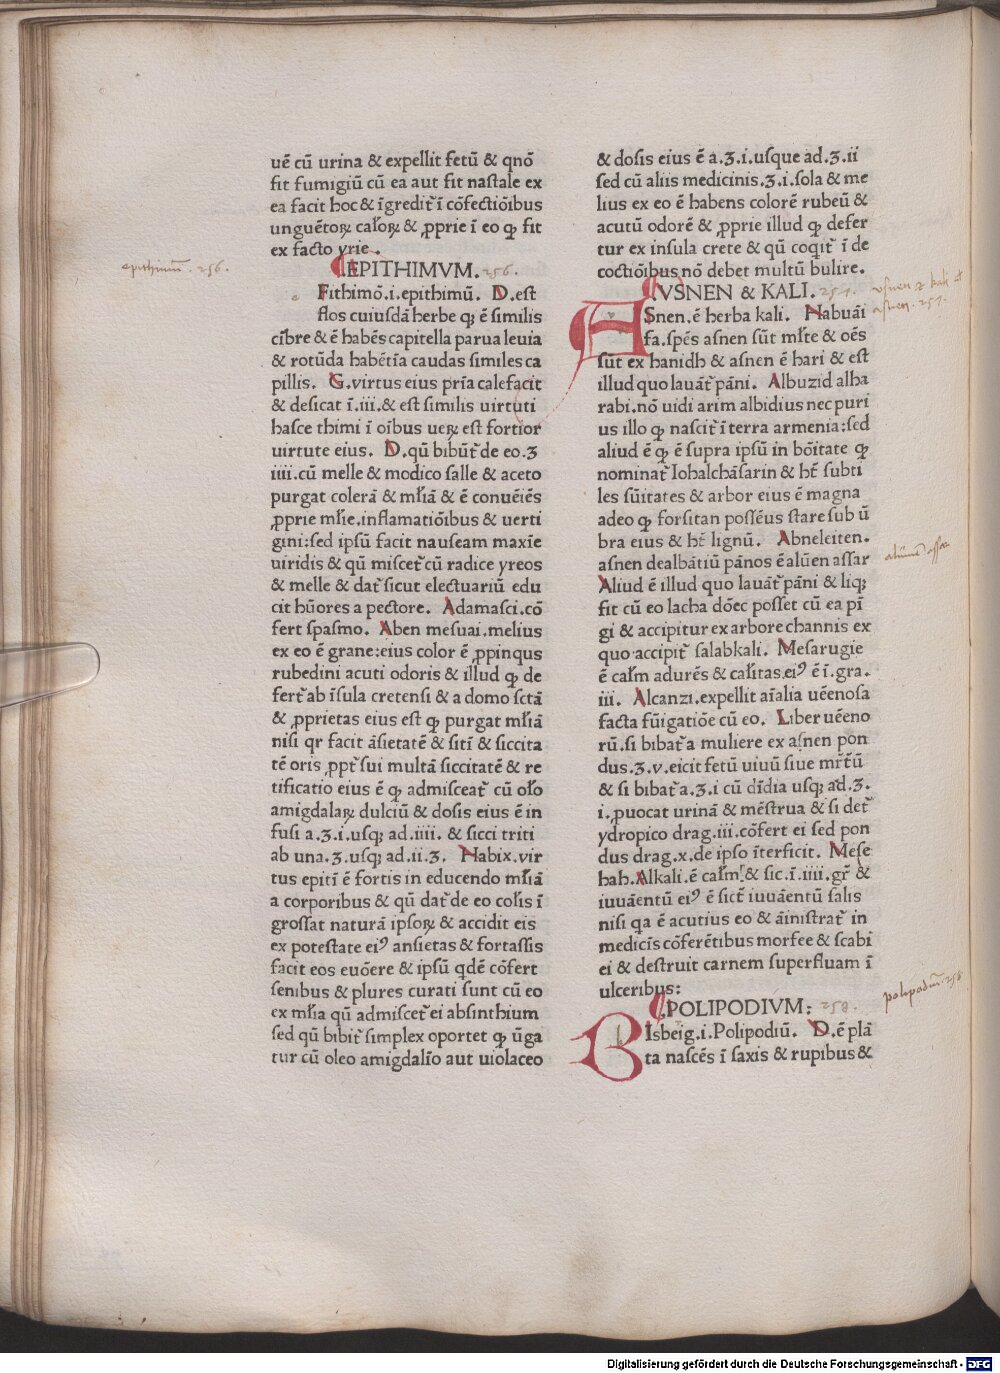 uē cū urina & expellit fetū & qnō
fit fumigiū cū ea aut fit nastale ex
ea facit hoc & īgredit᷑ ī cōfectiōibus
unguētoꝝ caloꝝ & ꝓprie ī eo ꝙ fit
ex facto yrie.
EPITHIMVM. 256.
epithimū. 256.
Fithimō.i.epithimū. D.est
flos cuiusdā herbe qꝫ ē similis
cībre & ē habēs capitella parua leuia
& rotūda habētīa caudas similes ca
pillis. G.virtus eius pria calefacit
& desicat ī.iii.& est similis uirtuti
hasce thimi ī oībus ueꝝ est fortior
uirtute eius. D.qū bibūt᷑ de eo.ʒ
iiii.cū melle & modico salle & aceto
purgat colerā & mlīā & ē conuēiēs
ꝓprie mīie.inflamatiōibus & uerti
gini:sed ipsū facit nauseam maxīe
uiridis & qū miscet᷑ cū radice yreos
& melle & dat᷑ sicut electuariū edu
cit hūores a pectore. Adamasci.cō
fert spasmo. Aben mesuai.melius
ex eo ē grane:eius color ē ꝓpinqus
rubedini acuti odoris & illud ꝙ de
fert᷑ ab īsula cretensi & a domo sctā
& ꝓprietas eius est ꝙ purgat mlīā
nisi qr facit āsietatē & sitī & siccita
tē oris ꝓpt᷑ sui multā siccitatē & re
tificatio eius ē ꝙ admisceat᷑ cū olo
amigdalaꝝ dulciū & dosis eius ē in
fusi a.ʒ.i.usqꝫ ad.iiii. & sicci triti
ab una.ʒ.usqꝫ ad.ii.ʒ. Habix.vir
tus epitī ē fortis in educendo mlīā
a corporibus & qū dat᷑ de eo colis ī
grossat naturā ipsoꝝ & accidit eis
ex potestate eiꝰ ansietas & fortassis
facit eos euōere & ipsū qdē cōfert
senibus & plures curati sunt cū eo
ex mlīa qū admiscet᷑ ei absinthium
sed qū bibit᷑ simplex oportet ꝙ ūga
tur cū oleo amigdalīo aut uiolaceo
& dosis eius ē a.ʒ.i.usque ad.ʒ.ii
sed cū aliis medicinis.ʒ.i.sola & me
lius ex eo ē habens colorē rubeū &
acutū odorē & ꝓprie illud ꝙ defer
tur ex insula crete & qū coqit᷑ ī de
coctiōibus nō debet multū bulire.
VSNEN & KALI. 257.
vsnen & kali et
asnen. 257.
ASnen.ē herba kali. Habuāi
fa.spēs asnen sūt mlte & oēs
sūt ex hanidh & asnen ē hari & est
illud quo lauāt᷑ pāni. Albuzid alha
rabi.nō uidi arim albidius nec puri
us illo ꝙ nascit᷑ ī terra armenia:sed
aliud ē ꝙ ē supra ipsū in bōitate ꝙ
nominat᷑ Iohalchāsarin & ht᷑ subti
les sūitates & arbor eius ē magna
adeo ꝙ forsitan possēus stare sub ū
bra eius & ht᷑ lignū. Abneleiten.
asnen dealbātiū pānos ē alūen assar
alūme assar
Aliud ē illud quo lauāt᷑ pāni & liqꝫ
fit cū eo lacha dōec posset cū ea pī
gi & accipitur ex arbore channis ex
quo accipit᷑ salabkali. Mesarugie
ē calm adurēs & calitas.eiꝰ ē ī.gra.
iii. Alcanzi.expellit aīalia uēenosa
facta fūigatiōe cū eo. Liber uēeno
rū.si bibat᷑ a muliere ex asnen pon
dus.ʒ.v.eicit fetū uiuū siue mrt᷑ū
& si bibat᷑ a.ʒ.i cū dīdia usqꝫ ad.ʒ.
i.ꝓuocat urinā & mēstrua & si det᷑
ydropico drag.iii.cōfert ei sed pon
dus drag.x.de ipso īterficit. Mese
hah.Alkali.ē calm.& sic.ī.iiii.gr᷑ &
iuuāentū eiꝰ ē sict᷑ iuuāentū salis
nisi qa ē acutius eo & āinistrat᷑ in
medicīs cōferētibus morfee & scabi
ei & destruit carnem superfluam ī
ulceribus:
POLIPODIVM: 258.
polipodiū. 258
BIsbeig.i.Polipodiū. D.ē plā
ta nascēs ī saxis & rupibus &
Digitalisierung gefördert durch die Deutsche Forschungsgemeinschaft - DFG